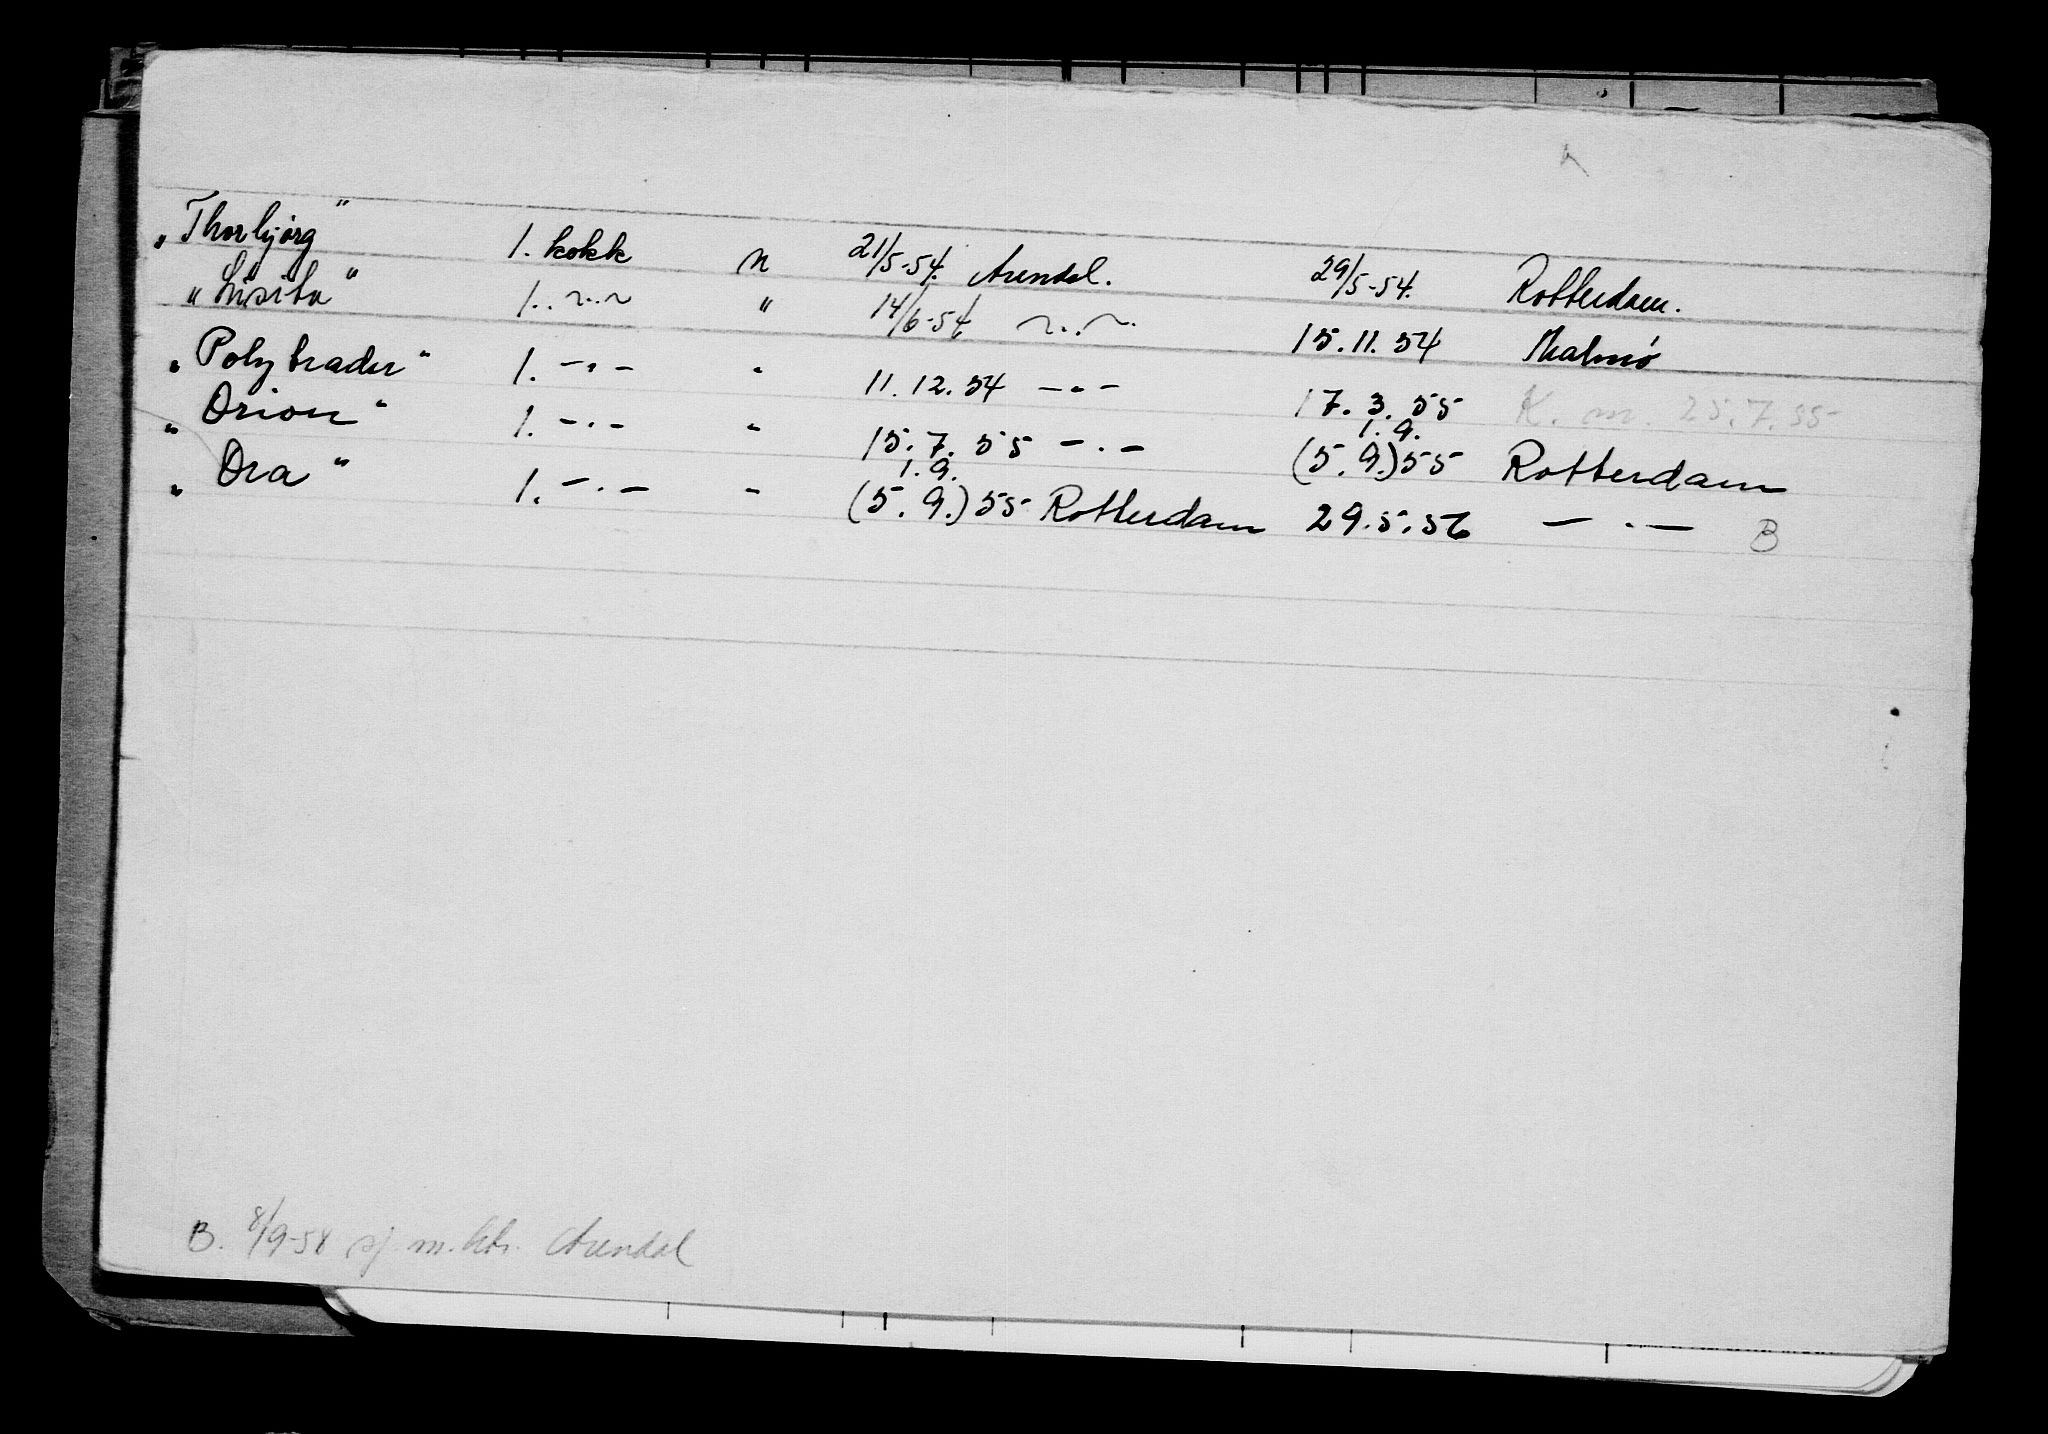 „Thorbjørg" 1. kokk n 21/5-54. Arendal. 29/5-54. Rotterdam.
"Lisita" 1. .~..~ " 14/6-54 ~..~. 15.11.54 Malmö
"Polytrader" 1. -"- " 11.12.54 -"- 17.3.55 K. m. 25.7.55
"Orion" 1. -"- " 15.7.55 -"- 1.9. (5.9.)55 Rotterdam
"Ora" 1. -"- " 1.9. (5.9.)55 Rotterdam 29.5.56 -"- B
B. 8/9-58 sj. m. ktr. Arendal